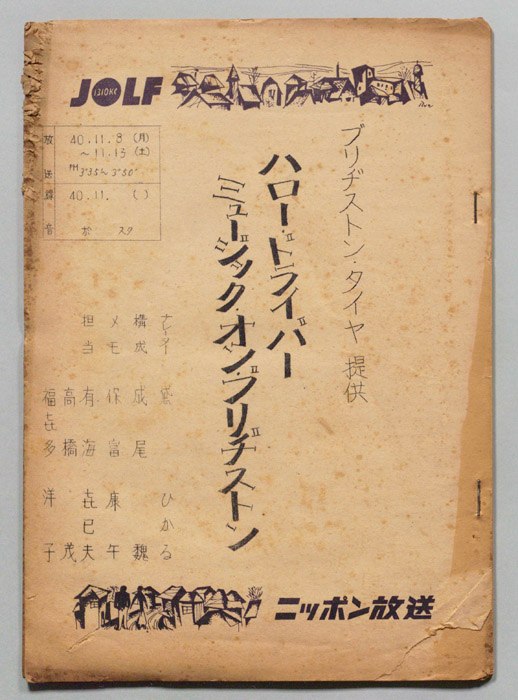 JOLF
1310KC
放送 40.11.8 (月)
～11.13 (土)
PM 3°35～3°50'
録音 40.11. ( )
於 スタ
ブリヂストン・タイヤ 提供
ハロー・ドライバー
ミュージック・オン・ブリヂストン
ひかる
構成 成尾 魏
メモ 保富 康午
担当 有海 㐂巳夫
高橋 茂
福㐂多 洋子
ニッポン放送